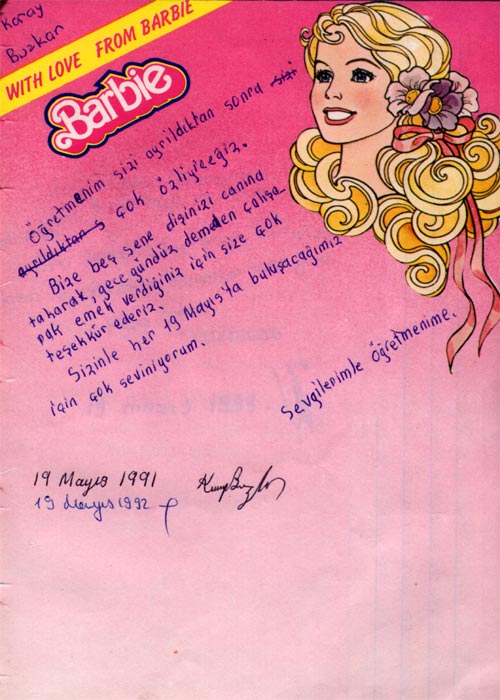 Koray
Bozkan
WITH LOVE FROM BARBIE
Barbie
Öğretmenim sizi ayrıldıktan sonra sizi
ayrıldıktan s çok özliyeceğiz.
Bize beş sene dişinizi canınıd
taharak, gece gündüz demeden çalışa
rak emek verdiğiniz için size çok
teşekkür ederiz.
Sizinle her 19 Mayıs'ta buluşacağımız
için çok seviniyorum.
Sevgilerimle Öğretmenime.
19 Mayıs 1991
19 Mayıs 1992